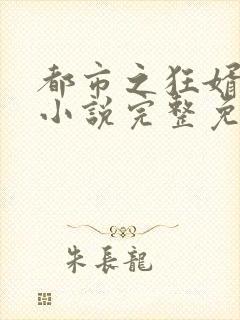 都市之狂婿
小說完整免
朱長龍